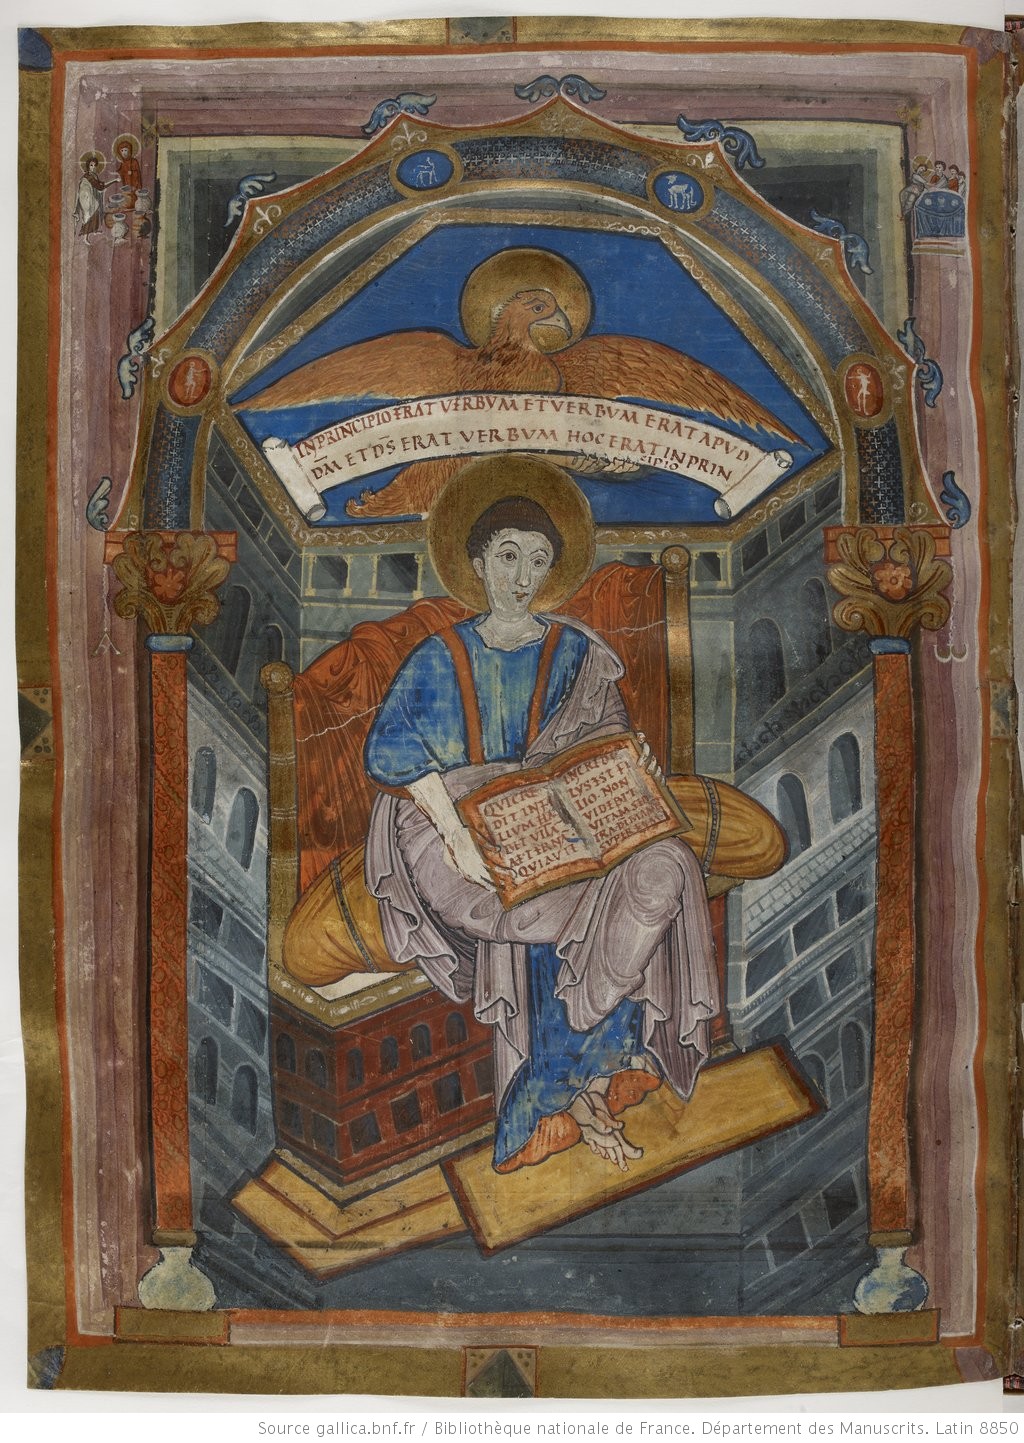 IN PRINCIPIO ERAT VERBUM ET VERBUM ERAT APUD
DM̅ ET DS̅ ERAT VERBUM HOC ERAT IN PRIN
CIPIO
A
ω
QUI CRE
DIT IN FI
LIUM HA
BET VITA
AETERNA
QUI AUTE
INCREDU
LUS EST FI
LIO NON
VIDEBIT
VITAM SED
IRA DI MA
SUPER
Source gallica.bnf.fr / Bibliothèque nationale de France. Département des Manuscrits. Latin 8850